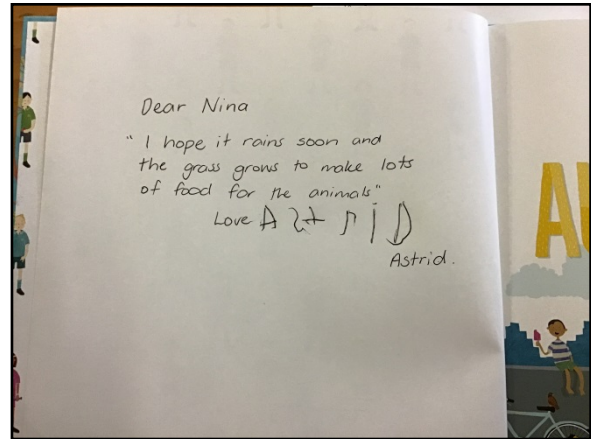 Dear Nina
" I hope it rains soon and
the grass grows to make lots
of food for the animals"
Love AstriD
Astrid.